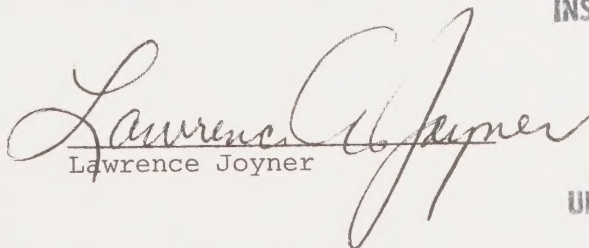 INS
Lawrence A Joyner
Lawrence Joyner